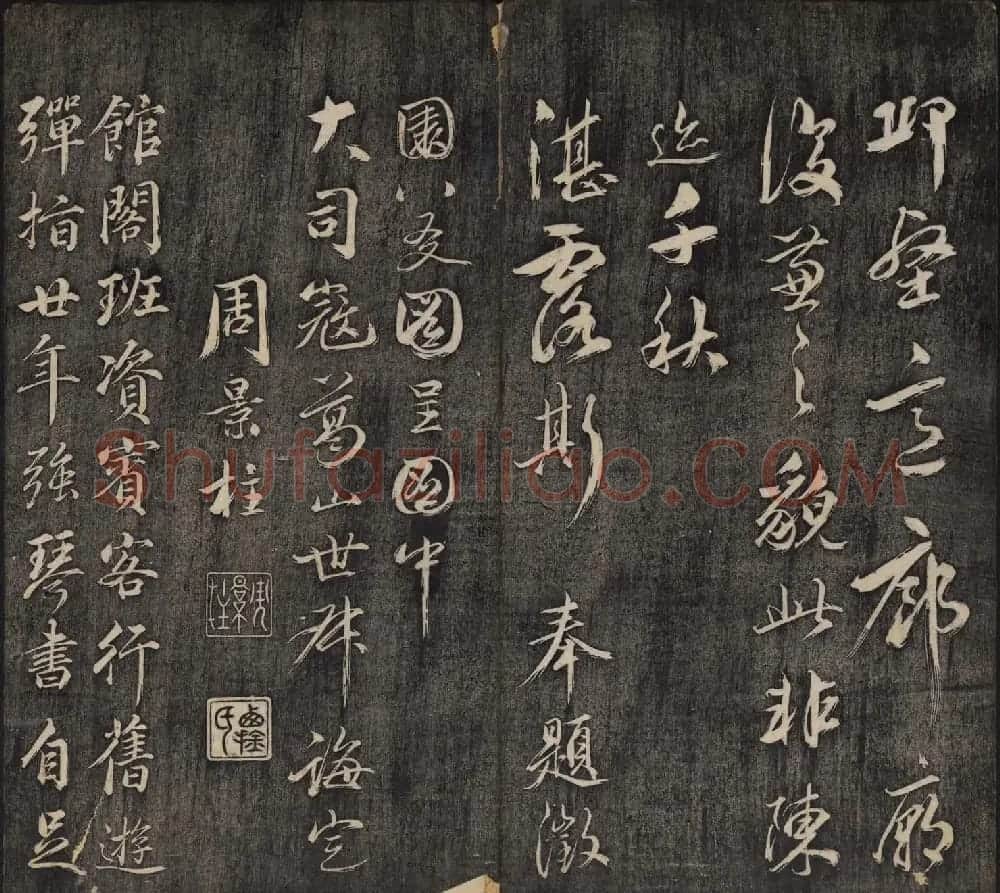 邱壑意廊廟
復兼之貌此非陳
迹千秋
湛露斯　奉題澂
園八友圖呈圖中
大司寇葛山世叔　誨定
周景柱
周景柱
館閣班資賓客行舊遊
彈指廿年強琴書自足
Shufaziliao.COM